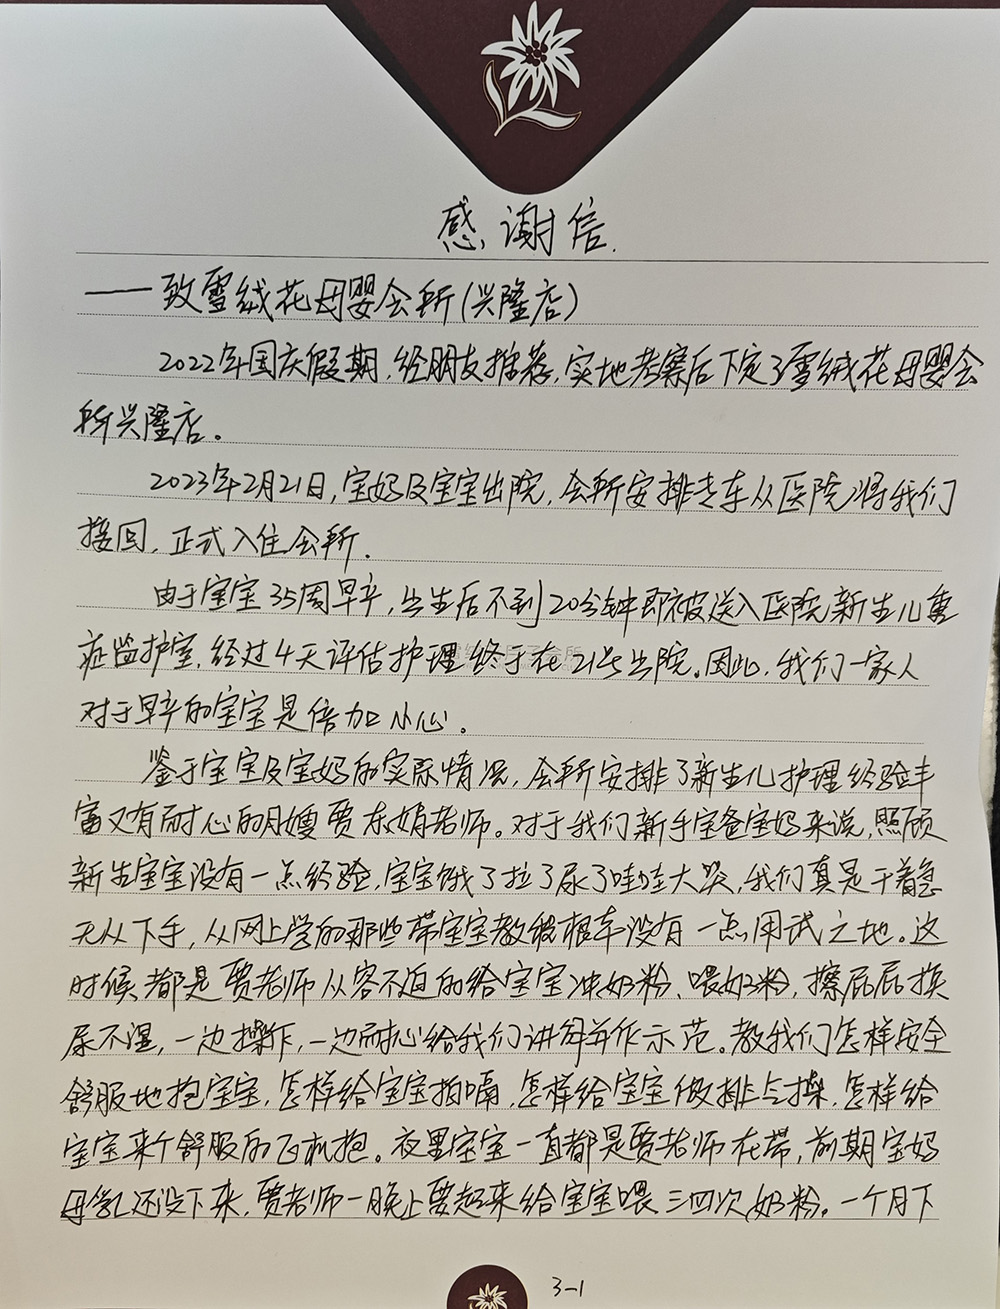 感谢信.
——致雪绒花母婴会所(兴隆店)
2022年国庆假期,经朋友推荐,实地考察后下定了雪绒花母婴会
所兴隆店。
2023年2月21日,宝妈及宝宝出院,会所安排专车从医院将我们
接回,正式入住会所.
由于宝宝35周早产,出生后不到20分钟即被送入医院新生儿重
症监护室,经过4天评估护理终于在21号出院。因此,我们一家人
对于早产的宝宝是倍加小心。
鉴于宝宝及宝妈的实际情况,会所安排了新生儿护理经验丰
富又有耐心的月嫂贾东娟老师。对于我们新手宝爸宝妈来说,照顾
新生宝宝没有一点经验,宝宝饿了拉了尿了哇哇大哭,我们真是干着急
无从下手,从网上学的那些带宝宝教程根本没有一点用武之地。这
时候都是贾老师从容不迫的给宝宝冲奶粉、喂奶粉,擦屁屁换
尿不湿,一边操作,一边耐心给我们讲解并作示范。教我们怎样安全
舒服地抱宝宝,怎样给宝宝拍嗝,怎样给宝宝做排气操,怎样给
宝宝来个舒服的飞机抱。夜里宝宝一直都是贾老师在带,前期宝妈
母乳还没下来,贾老师一晚上要起来给宝宝喂三四次奶粉。一个月下
3-1